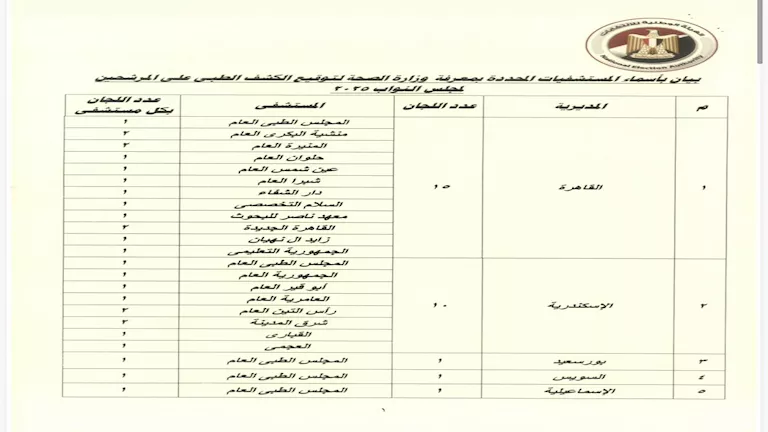 الهيئة الوطنية للانتخابات
National Election Authority
بيان بأسماء المستشفيات المحددة بمعرفة وزارة الصحة لتوقيع الكشف الطبى على المرشحين
لمجلس النواب ٢٠٢٥
م المديرية عدد اللجان المستشفى عدد اللجان بكل مستشفى
١ القاهرة ١٥ المجلس الطبى العام ١
منشية البكرى العام ٢
المنيرة العام ٢
حلوان العام ١
عين شمس العام ١
شبرا العام ١
دار الشفاء ١
السلام التخصصى ١
معهد ناصر للبحوث ١
القاهرة الجديدة ٢
زايد ال نهيان ١
الجمهورية التعليمى ١
٢ الإسكندرية ١٠ المجلس الطبى العام ١
الجمهورية العام ١
أبو قير العام ١
العامرية العام ١
رأس التين العام ٢
شرق المدينة ٢
القبارى ١
العجمى ١
٣ بورسعيد ١ المجلس الطبى العام ١
٤ السويس ١ المجلس الطبى العام ١
٥ الإسماعيلية ١ المجلس الطبى العام ١
١